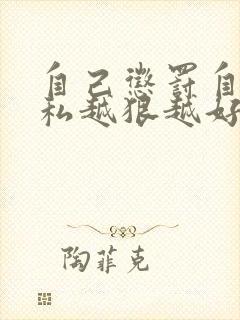 自己懲罰自
私越狠越好
陶菲克